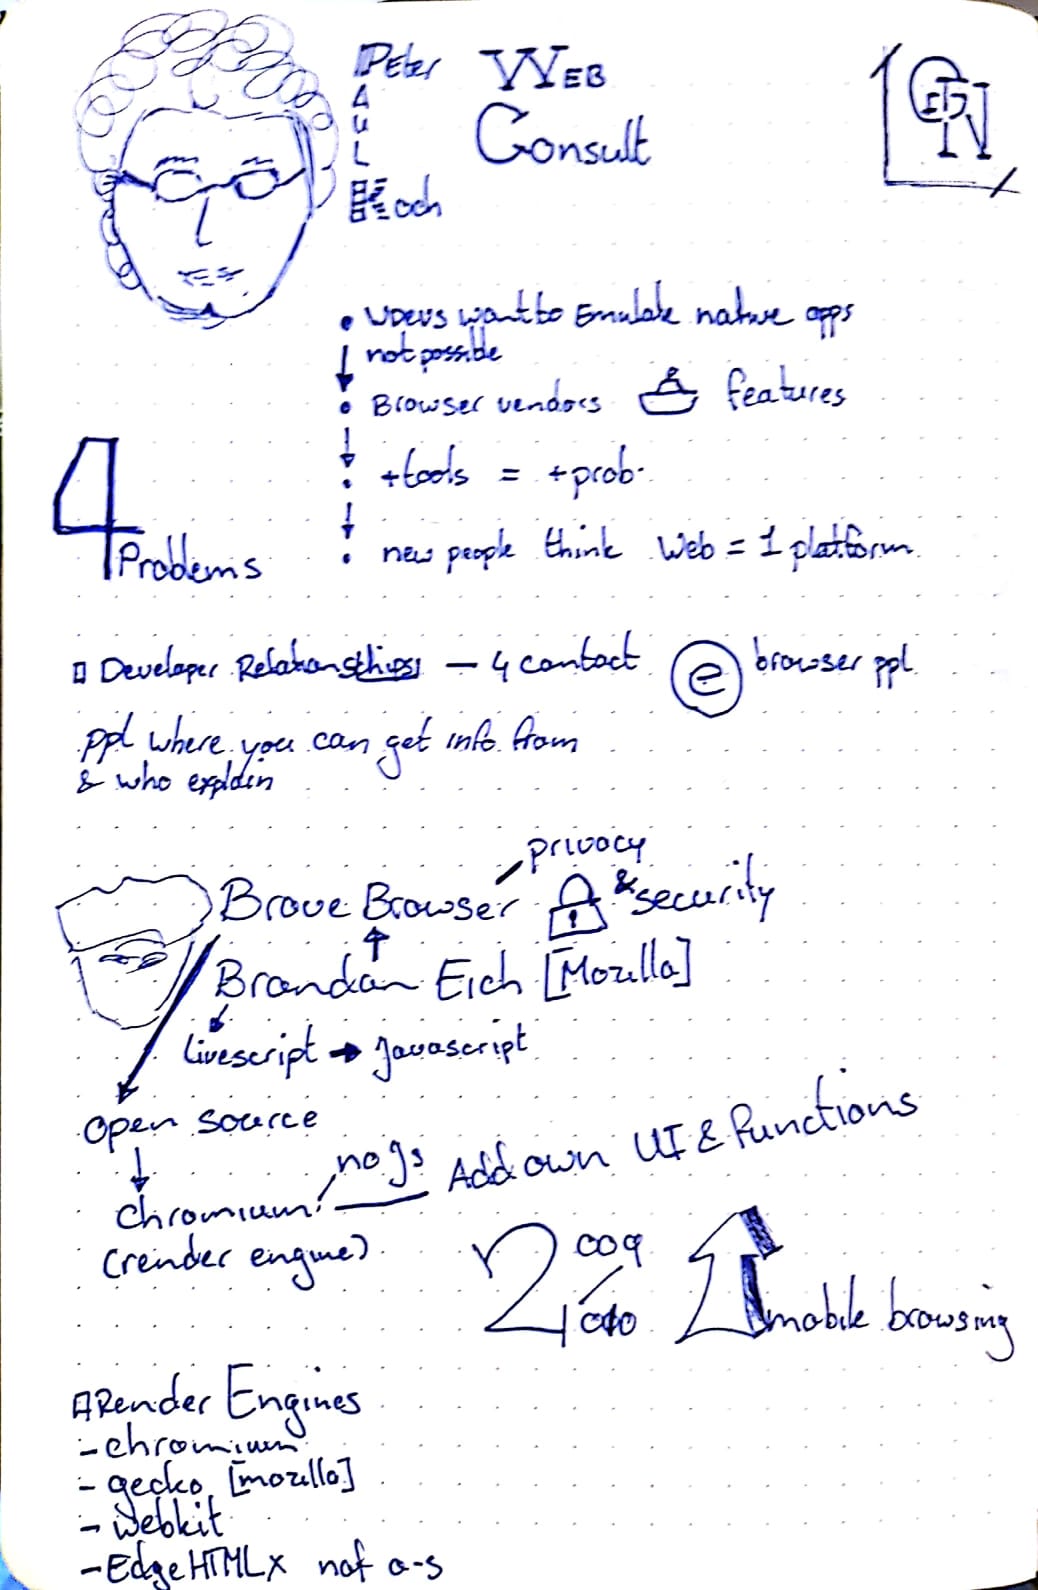 Peter
Paul
Koch
WEB
Consult
• WDEVS want to Emulate native apps
not possible
• Browser vendors features
• +tools = +prob.
• new people think Web = 1 platform
4
Problems
Developer Relationsthips — 4 contact e browser ppl.
ppl where you can get info from
& who explain
privacy
Brave Browser & security
Brandan Eich [Mozilla]
livescript → Javascript
Open source
no Js
Add own UI & functions
chromium!
(render engine)
2
mobile browsing
Render Engines
- chromium
- gecko [mozilla]
- webkit
- EdgeHTML x not o-s